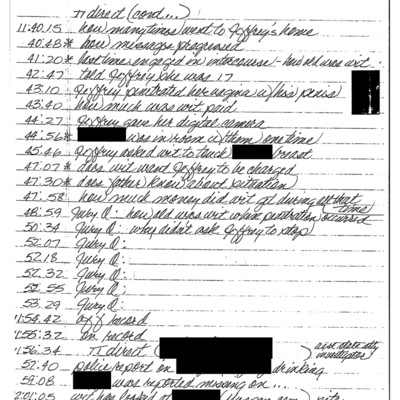 π direct (cont...)
11:40:15 how many times went to Jeffrey's home
40:48* how massages progressed
41:20* last time engaged in intercourse/ - how old was wit.
42:47 told Jeffrey she was 17
43:10 Jeffrey penetrated her vagina w/his penis
43:40 how much was wit paid
44:27 Jeffrey gave her digital camera
44:56* was in room w/them one time
45:46 Jeffrey asked wit to touch breast
47:07* does wit want Jeffrey to be charged
47:30* does father know about situation
47:58 how much money did wit get during all that time
48:59 Jury Q: how old was wit when penetration occurred
50:34 Jury Q: why didn't ask Jeffrey to stop
52:07 Jury Q:
52:18 Jury Q:
52:32 Jury Q:
52:55 Jury Q:
53:29 Jury Q:
11:54:42 off record
11:55:32 on record
11:56:34 π direct ( ) investigator
57:40 police report on drinking
59:08 was reported missing on...
2:01:05 wit has looked at